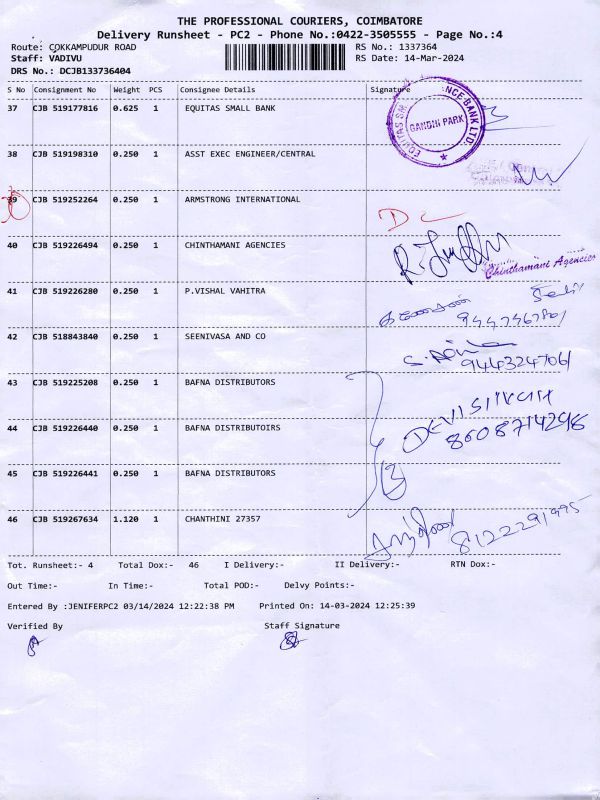 THE PROFESSIONAL COURIERS, COIMBATORE
Delivery Runsheet - PC2 - Phone No.:0422-3505555 - Page No.:4
Route: COKKAMPUDUR ROAD RS No.: 1337364
Staff: VADIVU RS Date: 14-Mar-2024
DRS No.: DCJB133736404
S No Consignment No Weight PCS Consignee Details Signature
37 CJB 519177816 0.625 1 EQUITAS SMALL BANK
EQUITAS SM NCE BANK LTD.
GANDHI PARK
38 CJB 519198310 0.250 1 ASST EXEC ENGINEER/CENTRAL
39 CJB 519252264 0.250 1 ARMSTRONG INTERNATIONAL
40 CJB 519226494 0.250 1 CHINTHAMANI AGENCIES
Chinthamani Agencies
41 CJB 519226280 0.250 1 P.VISHAL VAHITRA
42 CJB 518843840 0.250 1 SEENIVASA AND CO
43 CJB 519225208 0.250 1 BAFNA DISTRIBUTORS
44 CJB 519226440 0.250 1 BAFNA DISTRIBUTOIRS
8608714296
45 CJB 519226441 0.250 1 BAFNA DISTRIBUTORS
46 CJB 519267634 1.120 1 CHANTHINI 27357
8122291995
Tot. Runsheet:- 4 Total Dox:- 46 I Delivery:- II Delivery:- RTN Dox:-
Out Time:- In Time:- Total POD:- Delvy Points:-
Entered By :JENIFERPC2 03/14/2024 12:22:38 PM Printed On: 14-03-2024 12:25:39
Verified By Staff Signature